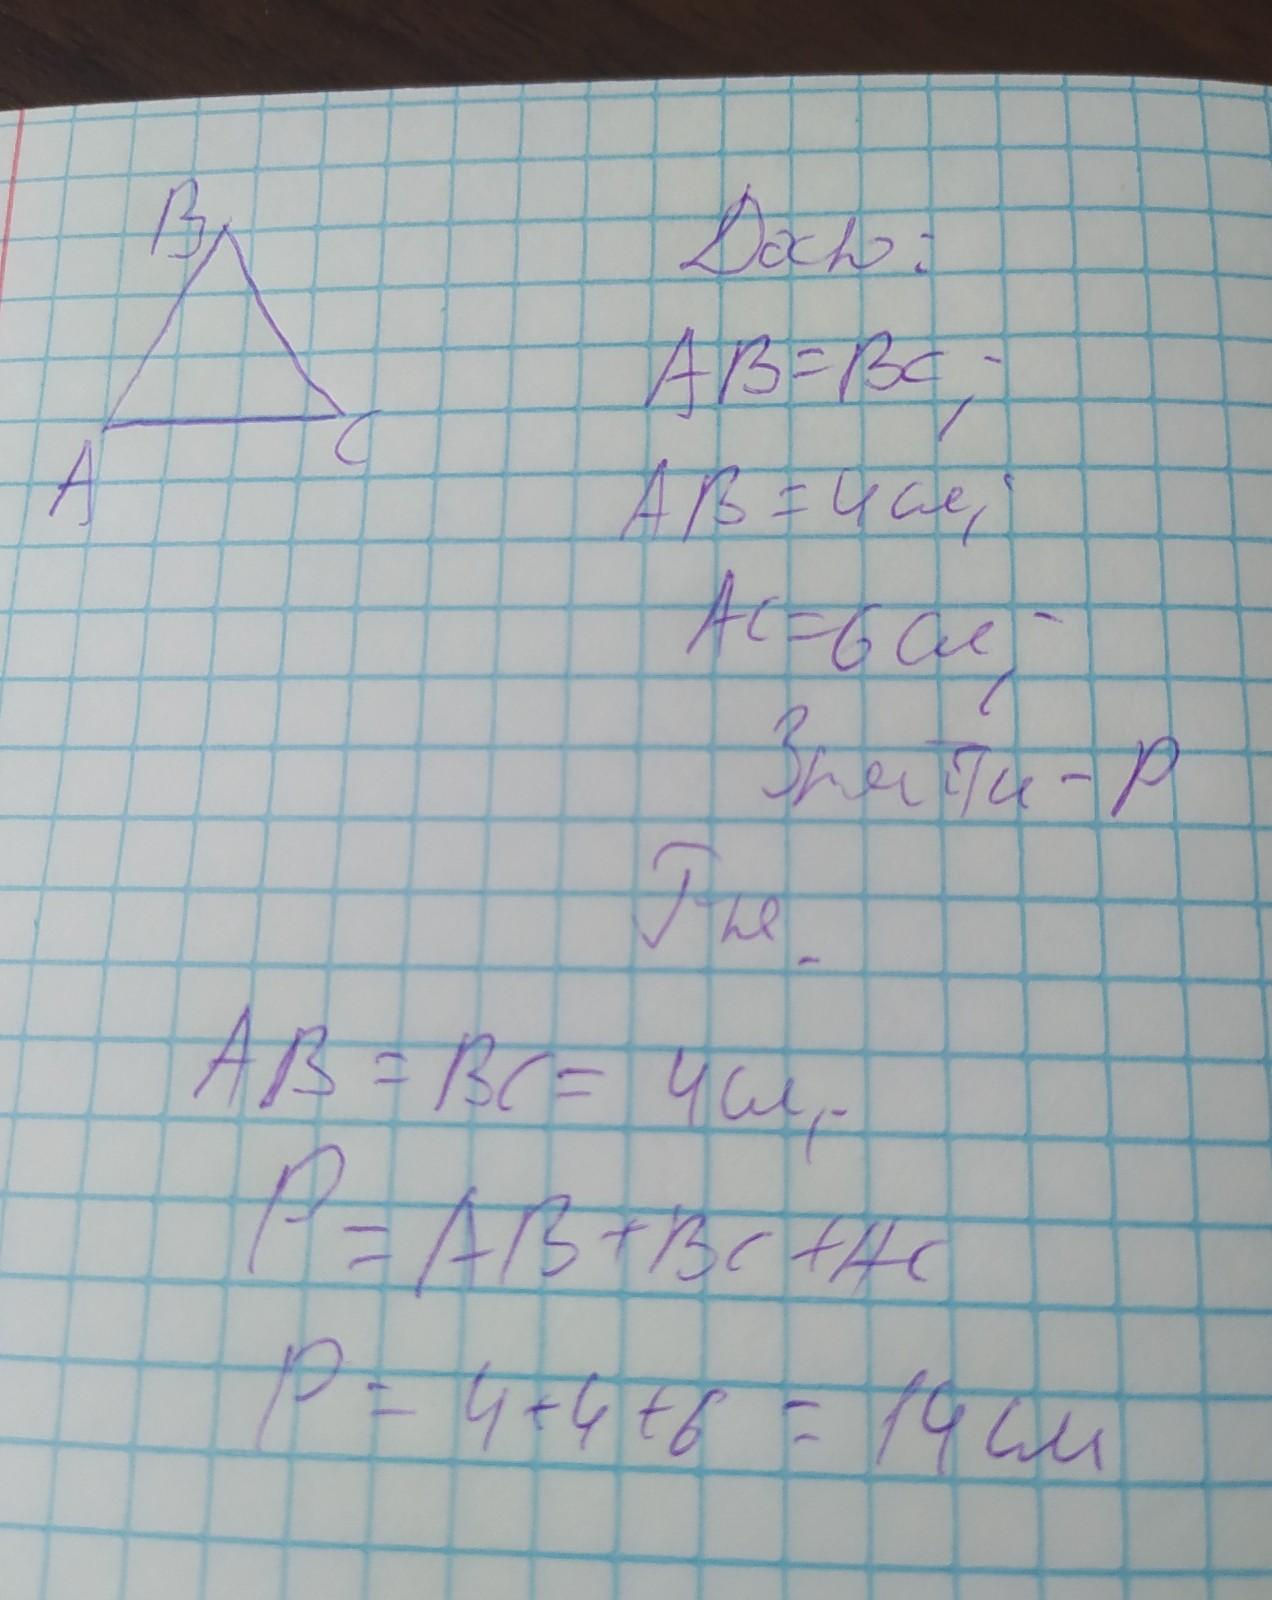 B
A
C
Дано:
AB=BC;
AB=4см;
AC=6см;
Знайти - P
AB=BC=4см;
P=AB+BC+AC
P=4+4+6=14см